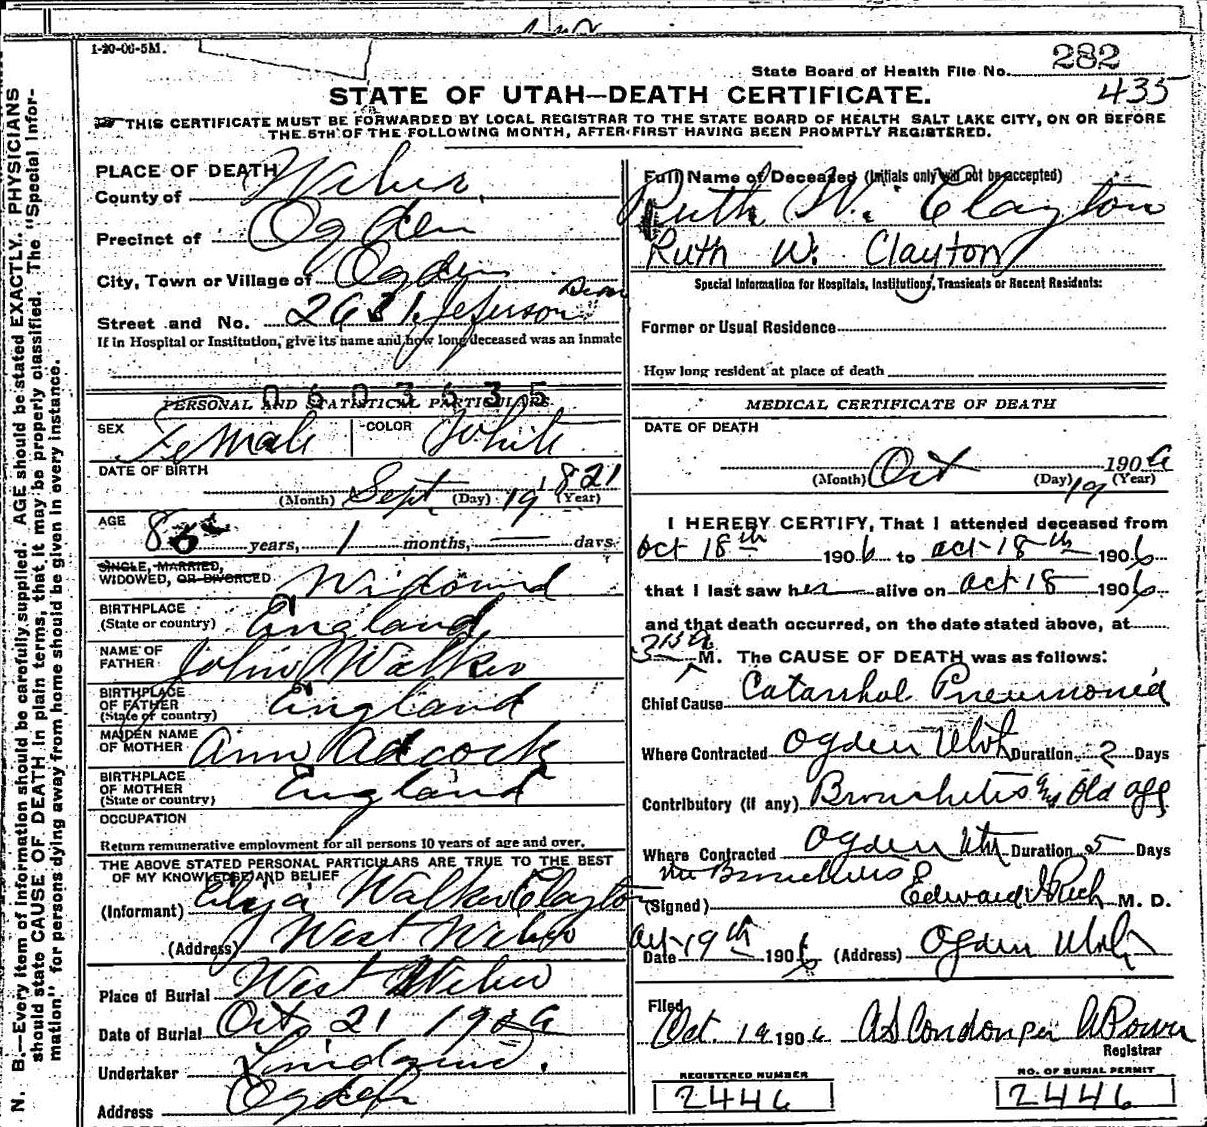 1-20-06-5M.
282
State Board of Health File No.
435
STATE OF UTAH—DEATH CERTIFICATE.
THIS CERTIFICATE MUST BE FORWARDED BY LOCAL REGISTRAR TO THE STATE BOARD OF HEALTH SALT LAKE CITY, ON OR BEFORE
THE 5TH OF THE FOLLOWING MONTH, AFTER FIRST HAVING BEEN PROMPTLY REGISTERED.
PLACE OF DEATH
County of Weber
Precinct of Ogden
City, Town or Village of Ogden
Street and No. 2631 Jeferson
If in Hospital or Institution, give its name and how long deceased was an inmate
0603635
PERSONAL AND STATISTICAL PARTICULARS
SEX Female COLOR White
DATE OF BIRTH
(Month) Sept (Day) 19 1821 (Year)
AGE 85 years, 1 months, — days
SINGLE, MARRIED,
WIDOWED, OR DIVORCED Widowed
BIRTHPLACE
(State or country) England
NAME OF
FATHER John Walker
BIRTHPLACE
OF FATHER
(State or country) England
MAIDEN NAME
OF MOTHER Ann Adcock
BIRTHPLACE
OF MOTHER
(State or country) England
OCCUPATION
Return remunerative employment for all persons 10 years of age and over.
THE ABOVE STATED PERSONAL PARTICULARS ARE TRUE TO THE BEST
OF MY KNOWLEDGE AND BELIEF
(Informant) Walker Clayton
(Address) West Weber
Place of Burial West Weber
Date of Burial Oct 21 1906
Undertaker Lindquist.
Address Ogden
Full Name of Deceased (Initials only will not be accepted)
Ruth W. Clayton
Ruth W. Clayton
Special Information for Hospitals, Institutions, Transients or Recent Residents:
Former or Usual Residence
How long resident at place of death
MEDICAL CERTIFICATE OF DEATH
DATE OF DEATH
(Month) Oct (Day) 19 1906 (Year)
I HEREBY CERTIFY, That I attended deceased from
Oct 18th 1906 to Oct-18-th 1906
that I last saw her alive on Oct 18 1906
and that death occurred, on the date stated above, at
M. The CAUSE OF DEATH was as follows:
Chief Cause Catarrhal Pneumonia
Where Contracted Ogden Utah Duration 2 Days
Contributory (if any) Bronchitis Old age
Where Contracted Ogden Utah Duration 5 Days
Bronchitis
(Signed) Edward I Rich M. D.
Date Oct-19th 1906 (Address) Ogden Utah
Filed Oct. 19 1906 AS Condon per A Power
Registrar
REGISTERED NUMBER
2446
NO. OF BURIAL PERMIT
2446
N. B.—Every item of information should be carefully supplied. AGE should be stated EXACTLY. PHYSICIANS
should state CAUSE OF DEATH in plain terms, that it may be properly classified. The "Special Infor-
mation" for persons dying away from home should be given in every instance.